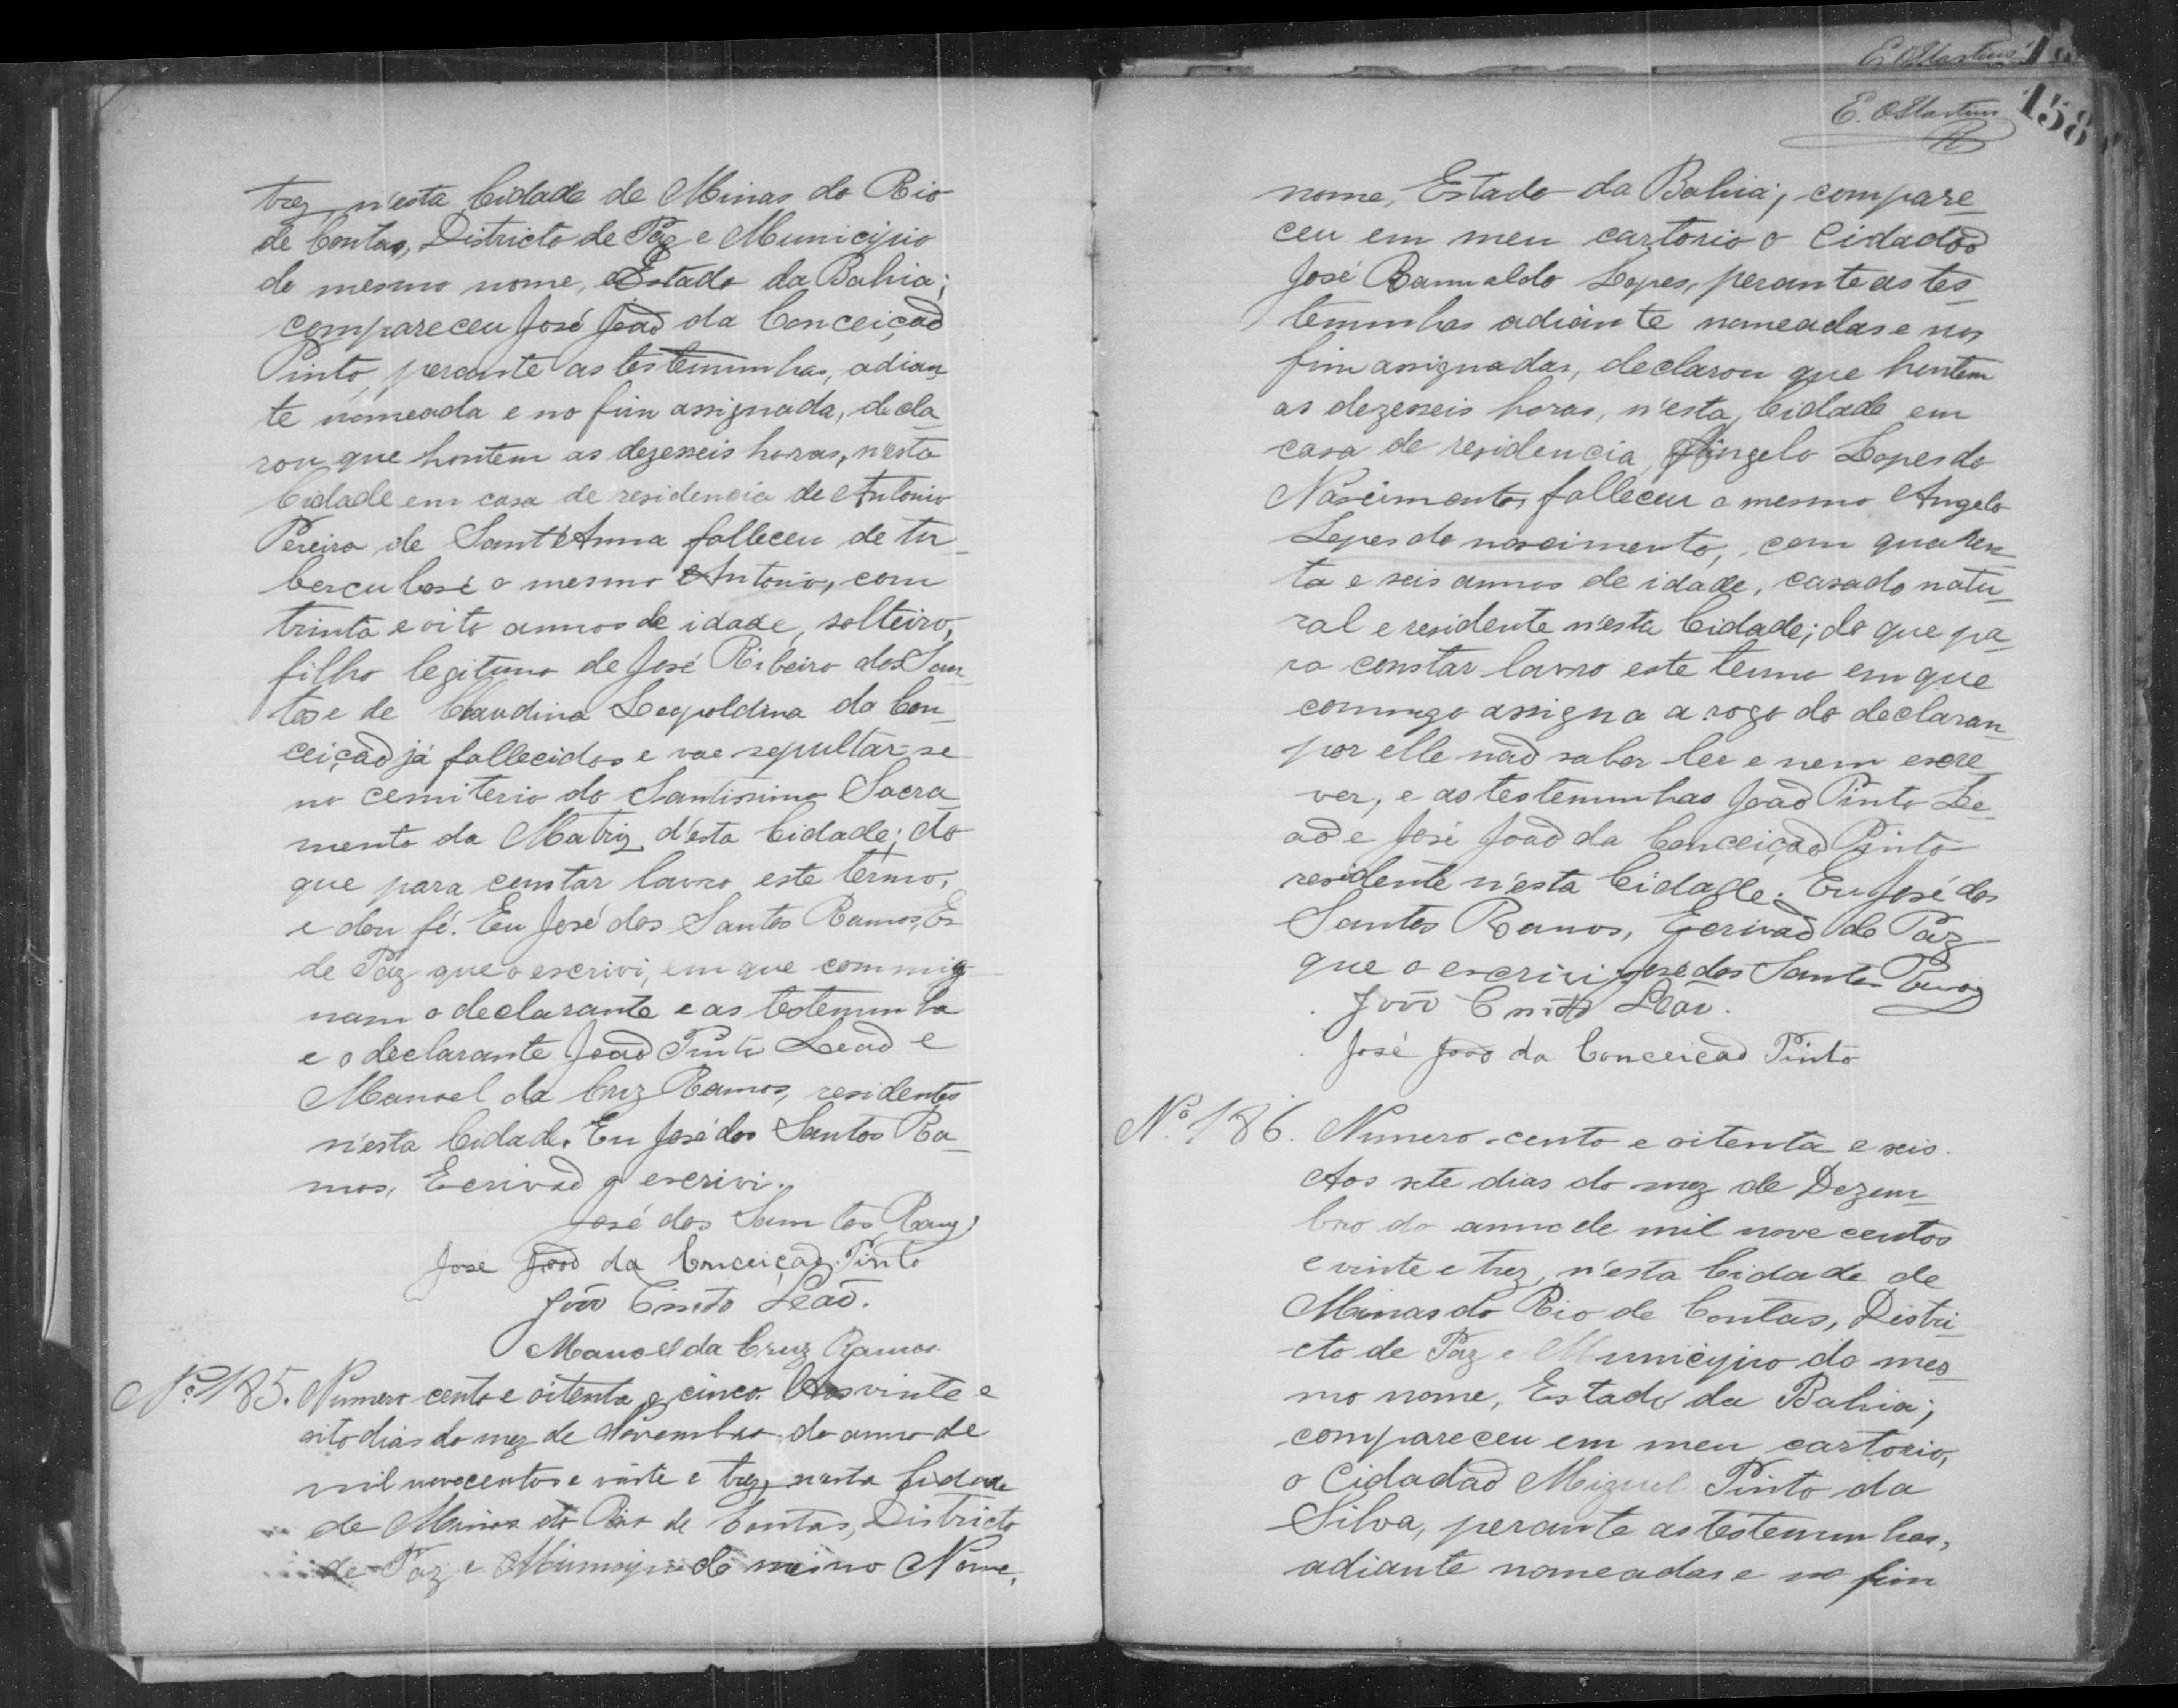 trez, n'esta Cidade de Minas do Rio
de Contas, Districto de Paz e Municipio
do mesmo nome, Estado da Bahia;
compareceu José João da Conceição
Pinto, perante as testemunhas, adian
te nomeada e no fim assignada, decla
rou que hontem as dezesseis horas, n'esta
Cidade em casa de residencia de Antonio
Pereira de Sant'Anna falleceu de tu
berculose o mesmo Antonio, com
trinta e oito annos de idade, solteiro,
filho legitimo de José Ribeiro dos San
tos e de Claudina Leopoldina da Con
ceição já fallecidos e vae sepultar-se
no cemiterio do Santissimo Sacra
mento da Matriz d'esta Cidade; do
que para constar lavro este termo,
e dou fé. Eu José dos Santos Ramos, Es
de Paz que o escrivi, em que commig
nam o declarante e as testemunha
e o declarante João Pinto Leão e
Manoel da Cruz Ramos, residentes
n'esta Cidade. Eu José dos Santos Ra
mos, Escrivão q escrivi.
José dos Santos Ramos
José João da Conceição Pinto
João Pinto Leão.
Manoel da Cruz Ramos.
Nº 185. Numero cento e oitenta e cinco. Aos vinte e
oito dias do mez de Novembro do anno de
mil novecentos e vinte e trez, nesta Cidade
de Minas do Rio de Contas, Districto
de Paz e Municipio do mesmo Nome,
E. Martins
158
E. Martins
nome, Estado da Bahia; compare
ceu em meu cartorio o Cidadão
José Ramualdo Lopes, perante as tes
temunhas adiante nomeadas e nos
fim assignadas, declarou que hontem
as dezesseis horas, n'esta Cidade em
casa de residencia Angelo Lopes do
Nascimento, falleceu o mesmo Angelo
Lopes do nascimento, com quaren
ta e seis annos de idade, casado natu
ral e residente n'esta Cidade; do que pa
ra constar lavro este termo em que
commigo assigna a rogo do declaran
por elle não saber ler e nem escre
ver, e as testemunhas João Pinto Le
ão e José João da Conceição Pinto
residente n'esta Cidade. Eu José dos
Santos Ramos, Escrivão de Paz
que o escrivi José dos Santos Ramos
João Pinto Leão.
José João da Conceição Pinto
Nº 186. Numero cento e oitenta e seis.
Aos sete dias do mez de Dezem
bro do anno de mil nove centos
e vinte e trez, n'esta Cidade de
Minas do Rio de Contas, Distri
cto de Paz e Municipio do mes
mo nome, Estado da Bahia;
compareceu em meu cartorio,
o Cidadão Miguel Pinto da
Silva, perante as testemunhas,
adiante nomeadas e no fim